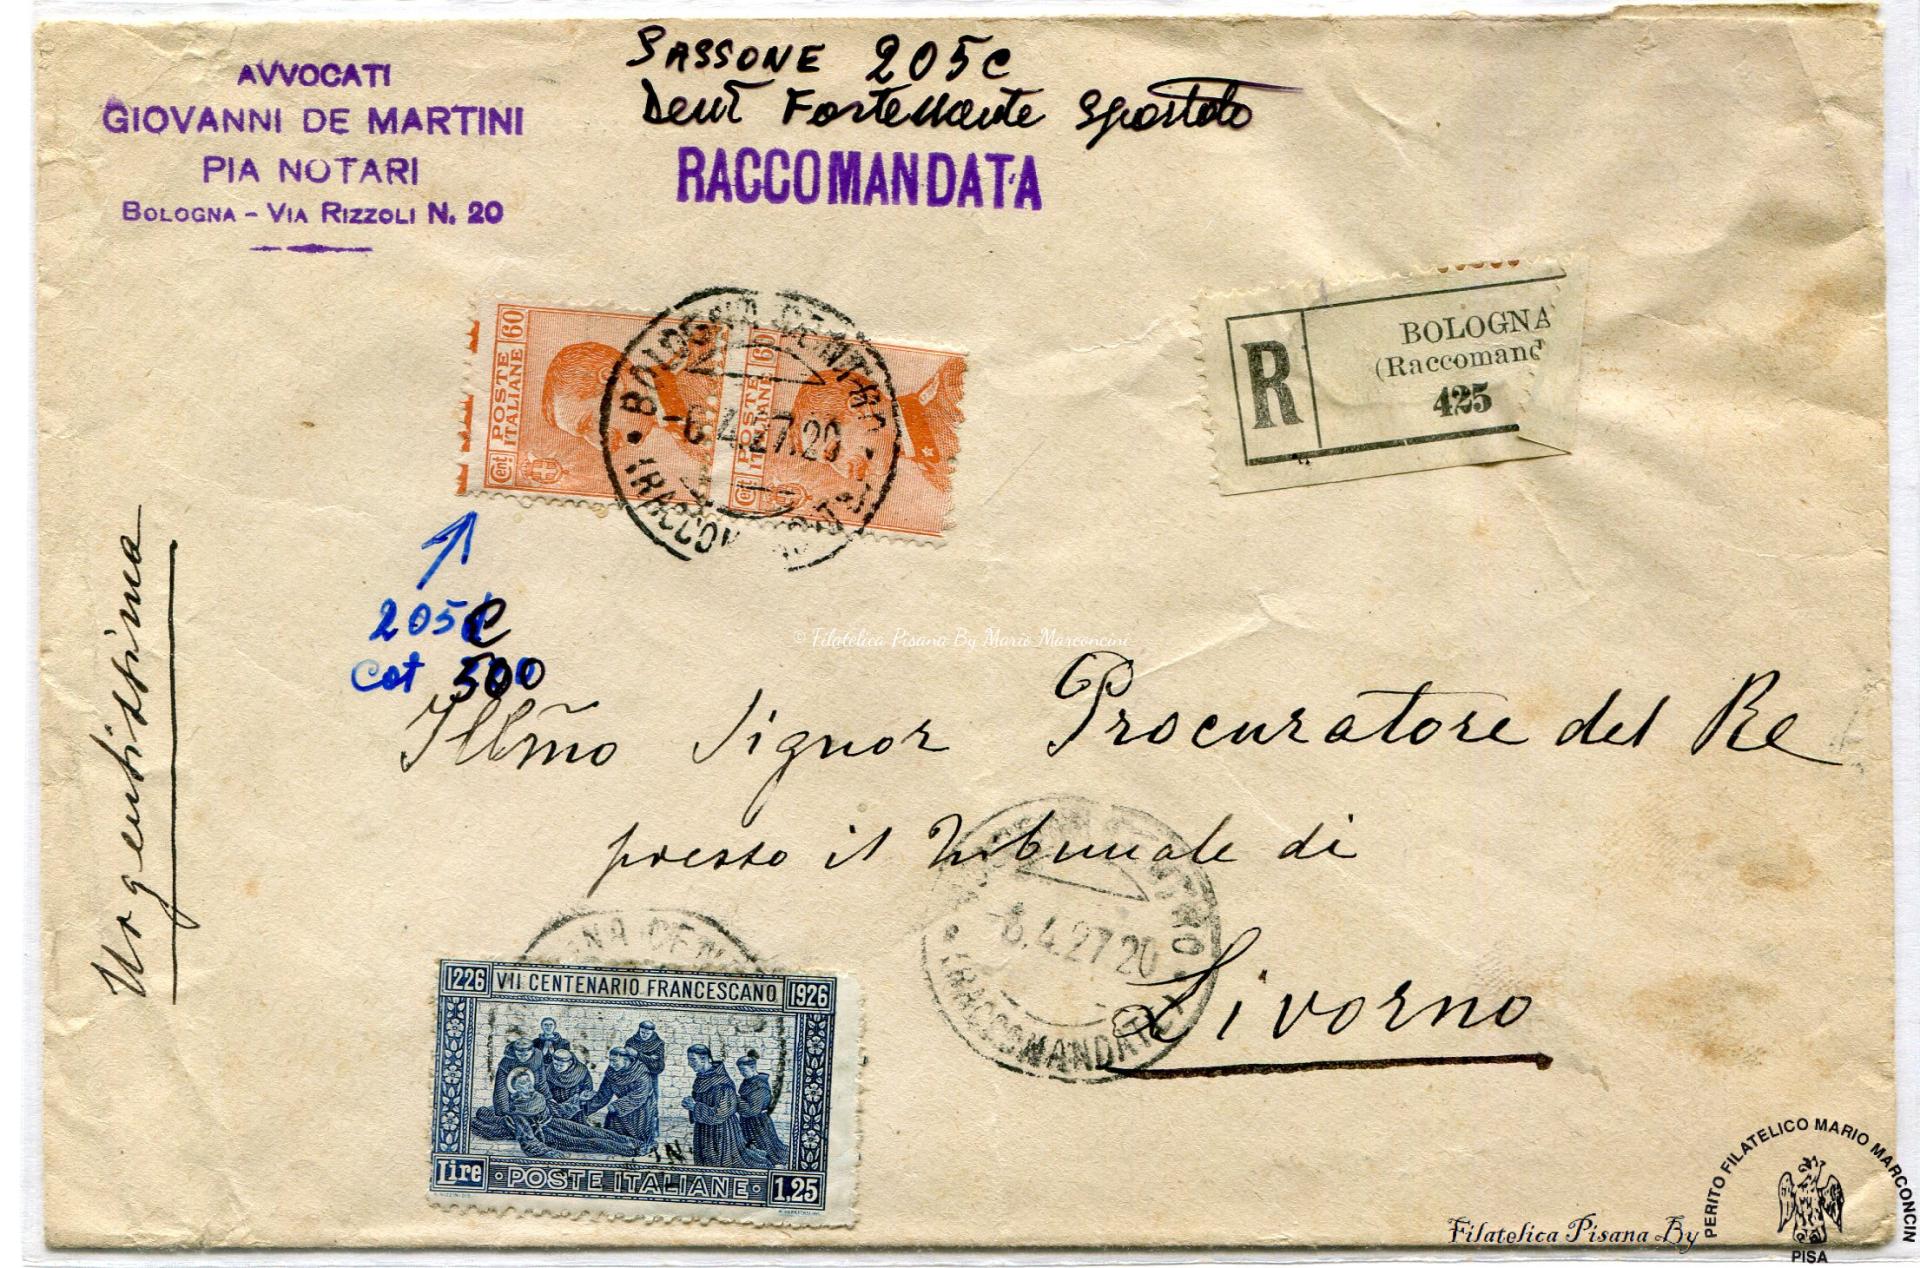 SASSONE 205C
Dent Fortemente Spostata
AVVOCATI
GIOVANNI DE MARTINI
PIA NOTARI
BOLOGNA - VIA RIZZOLI N. 20
RACCOMANDATA
POSTE ITALIANE
60
Cent
POSTE ITALIANE
60
Cent
BOLOGNA CENTRO
-6.4.27.20
(RACCOMANDATE)
R
BOLOGNA
(Raccomand
425
205C
Cat 500
© Filatelica Pisana By Mario Marconcini
Urgentissima
Illmo Signor Procuratore del Re
presso il Tribunale di
Livorno
-6.4.27 20
(RACCOMANDATE)
1226 VII CENTENARIO FRANCESCANO 1926
Lire · POSTE ITALIANE · 1,25
Filatelica Pisana By
PERITO FILATELICO MARIO MARCONCIN
PISA